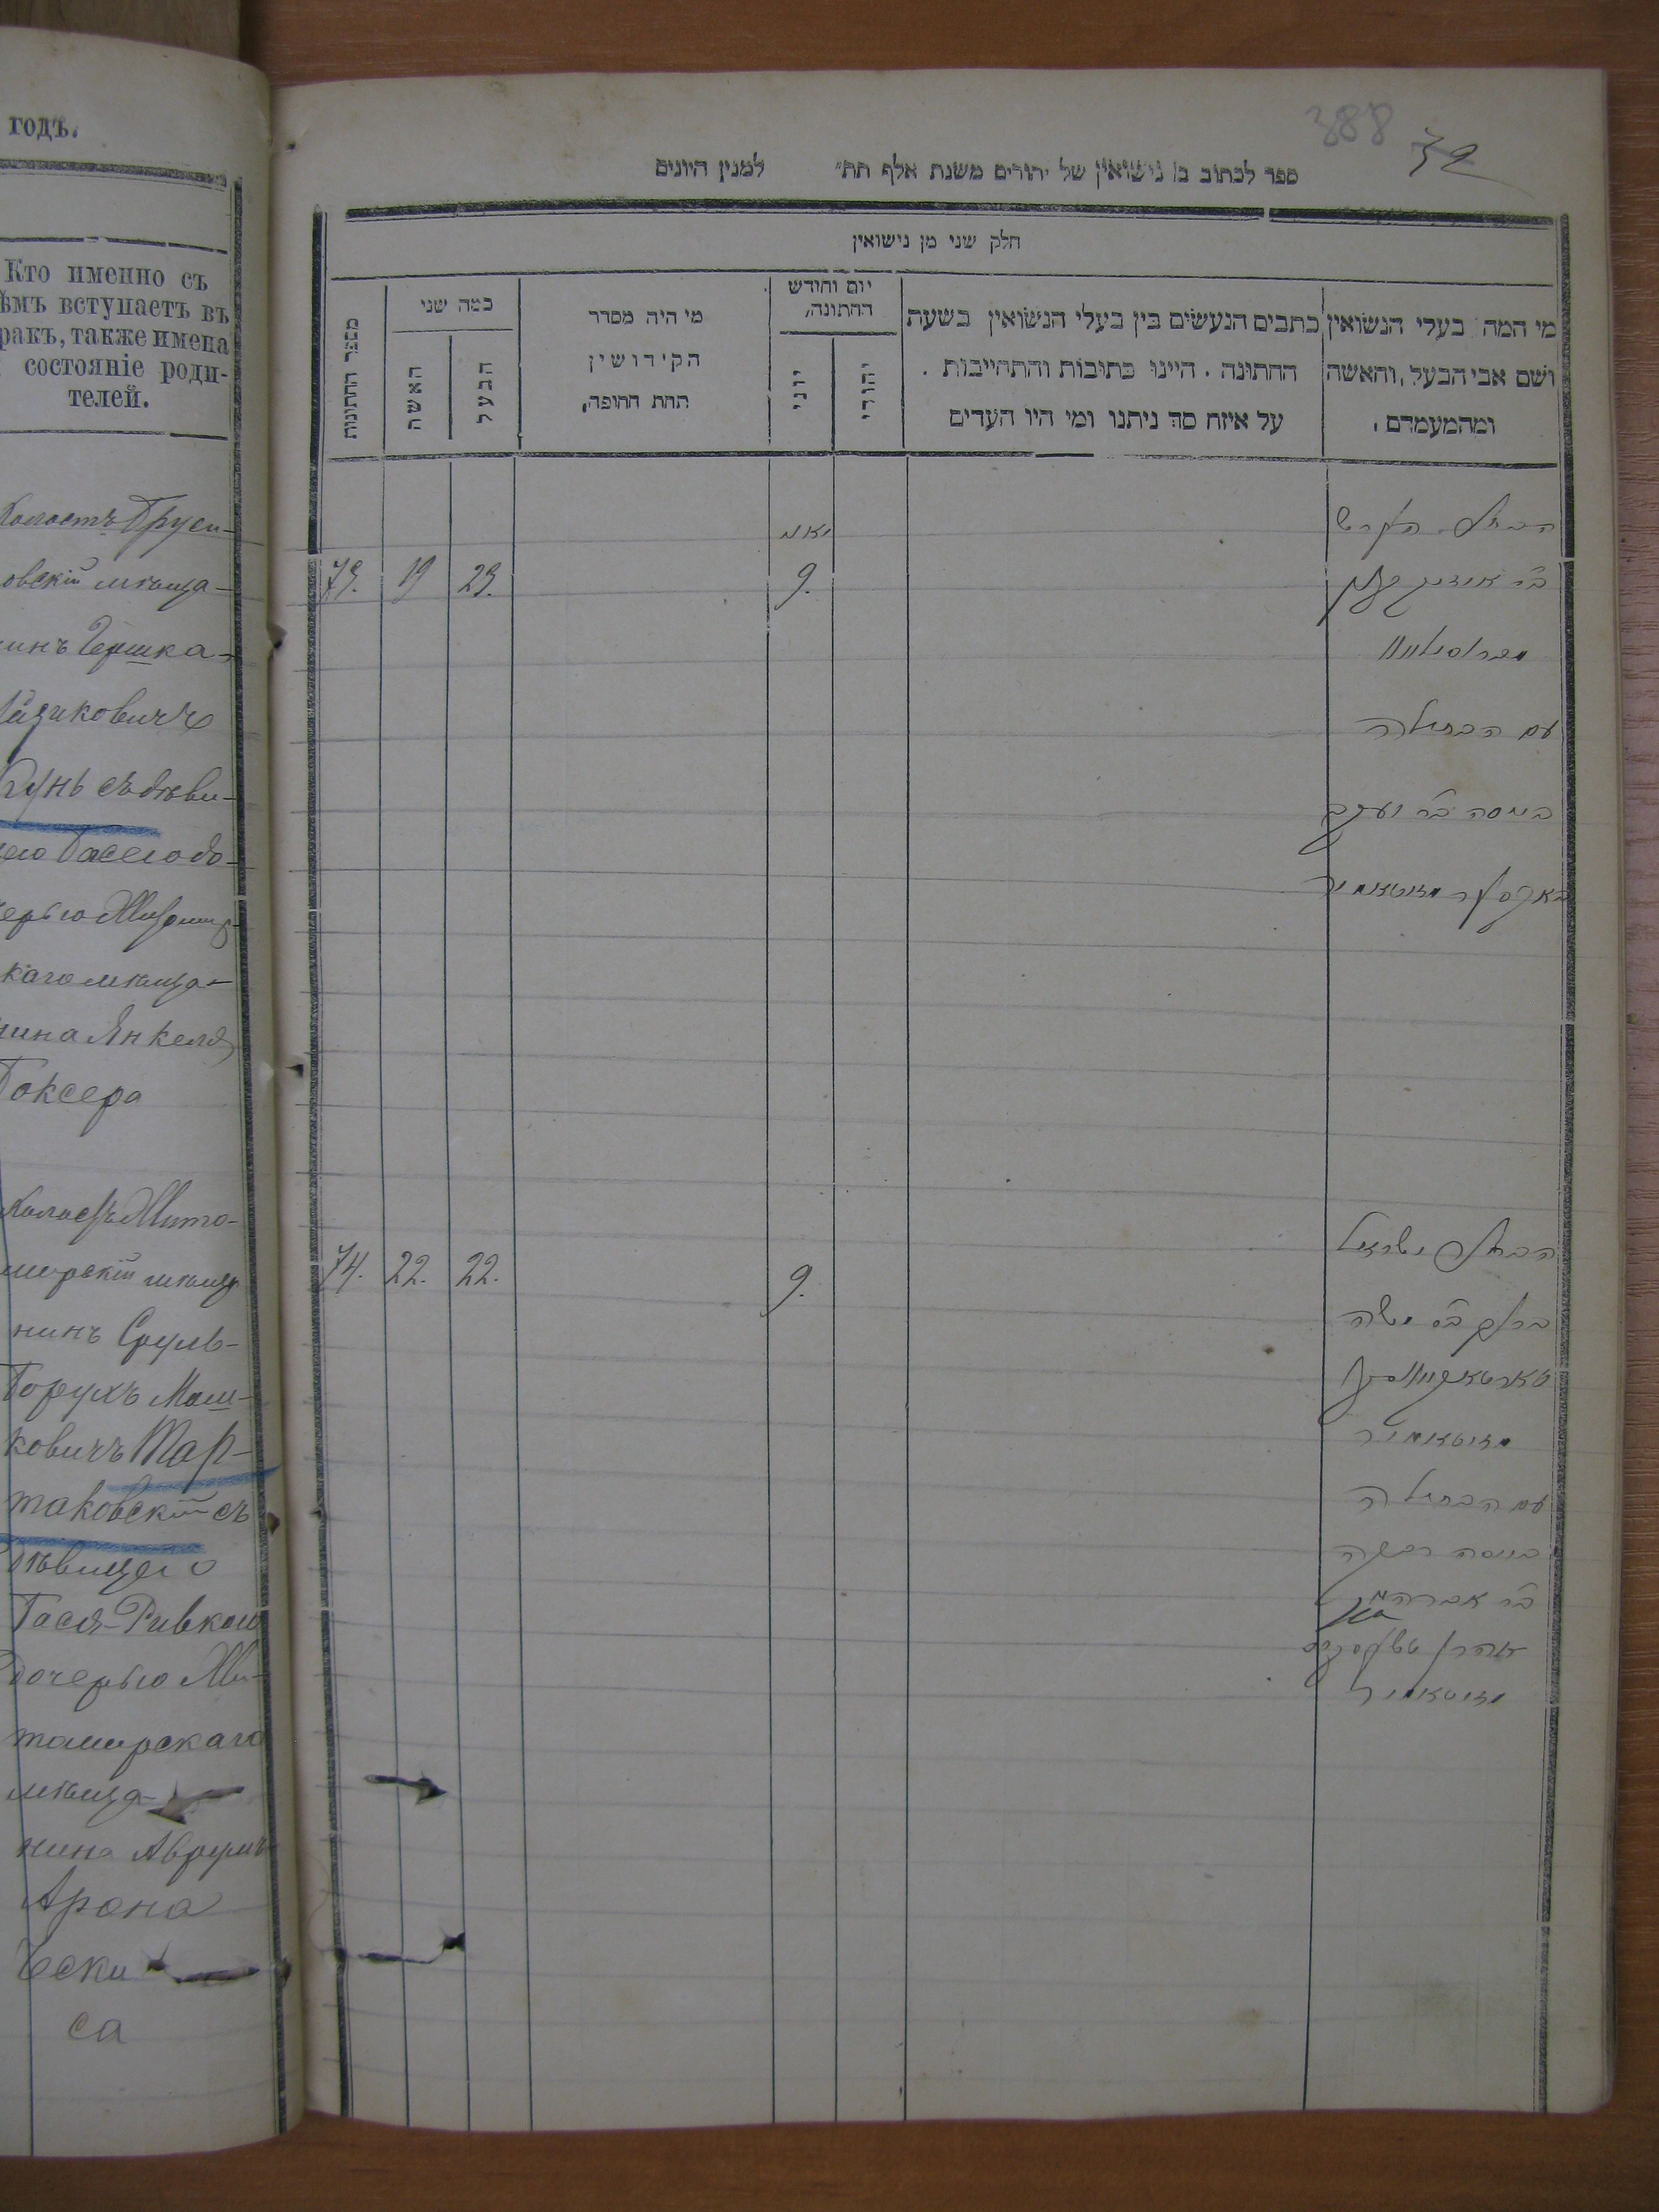 годъ.
Кто именно съ
нѣмъ вступаетъ въ
ракъ, также имена
состояніе роди-
телей.
Холостъ Бруси-
овскій мѣща-
нинъ Гершка
Айзиковичъ
съ дѣви-
цею Басею до-
черью Житомир-
скаго мѣща-
нина Янкеля
Боксера
Холостъ Жито-
мирскій мѣща
нинъ Сруль-
Борухъ Мош-
ковичъ Тар-
таковскій съ
дѣвицею
Бася-Ривкою
дочерью Жи-
томирскаго
мѣща-
нина Аврумъ
Арона
Чески
са
388
ספר לכתוב בו נישואין של יהודים משנת אלף תת״ למנין היונים
חלק שני מן נישואין
מספר החתונות
כמה שני
האשה
הבעל
מי היה מסדר
הקידושין
תחת החופה,
יום וחודש
החתונה,
יוני
יהודי
כתבים הנעשים בין בעלי הנשואין בשעת
החתונה. היינו כתובות והתהייבות.
על איזה סך ניתנו ומי היו העדים
מי המה בעלי הנשואין
ושם אבי הבעל, והאשה
ומהמעמדם.
73. 19 23. 9.
הבחור הערש
ב״ר אייזיק
עם הבתולה
בייסה ב״ר יעקב
באקסער מזיטאמיר
74. 22. 22. 9.
הבחור ישראל
ברוך ב״ר משה
טארטאקאווסקי
מזיטאמיר
עם הבתולה
בייסה רבקה
ב״ר אברהם
אהרן
מזיטאמיר